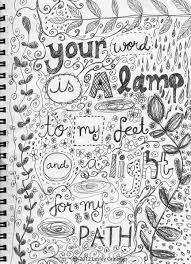 your word
is A lamp
to my feet
and a light
for my
PATH